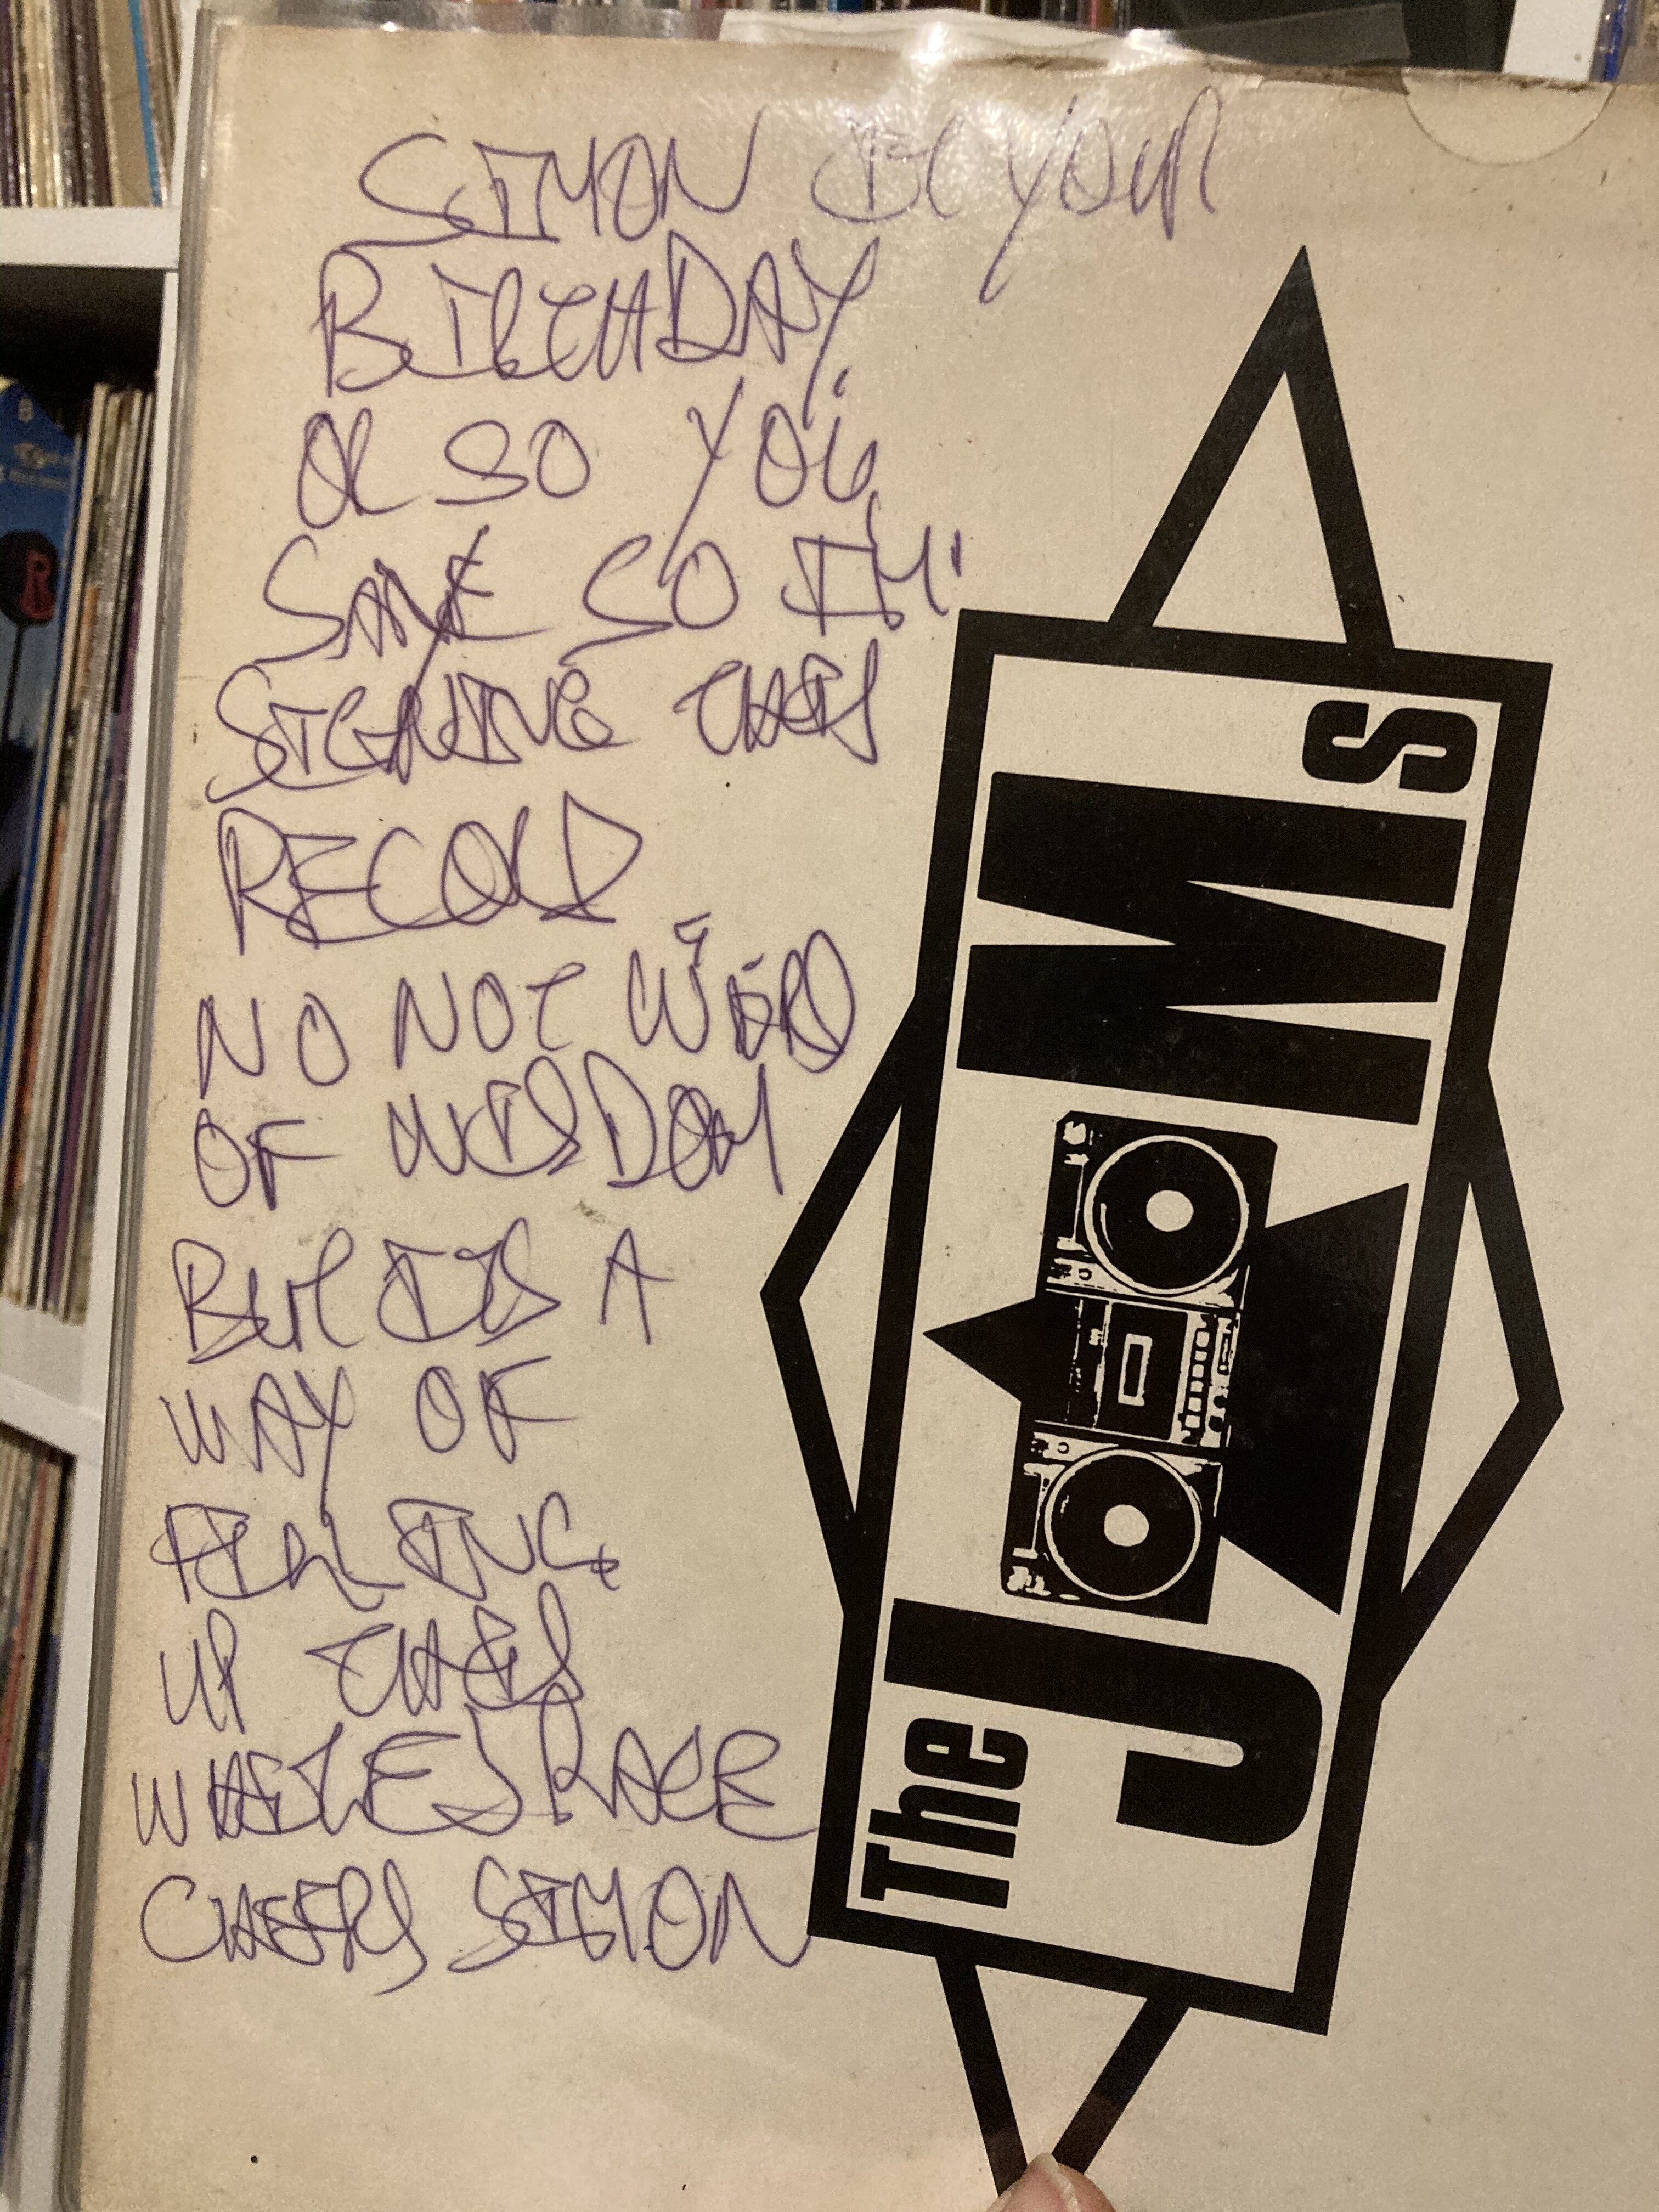 SIMON IT'S YOUR
BIRTHDAY
OR SO YOU
SAYE SO I'M
SIGNING THIS
RECORD
NO NOT WEIRD
OF WISDOM
BUT IT'S A
WAY OF
FILLING
UP THIS
WHITE SPACE
CHEERS SIMON
The JAMs